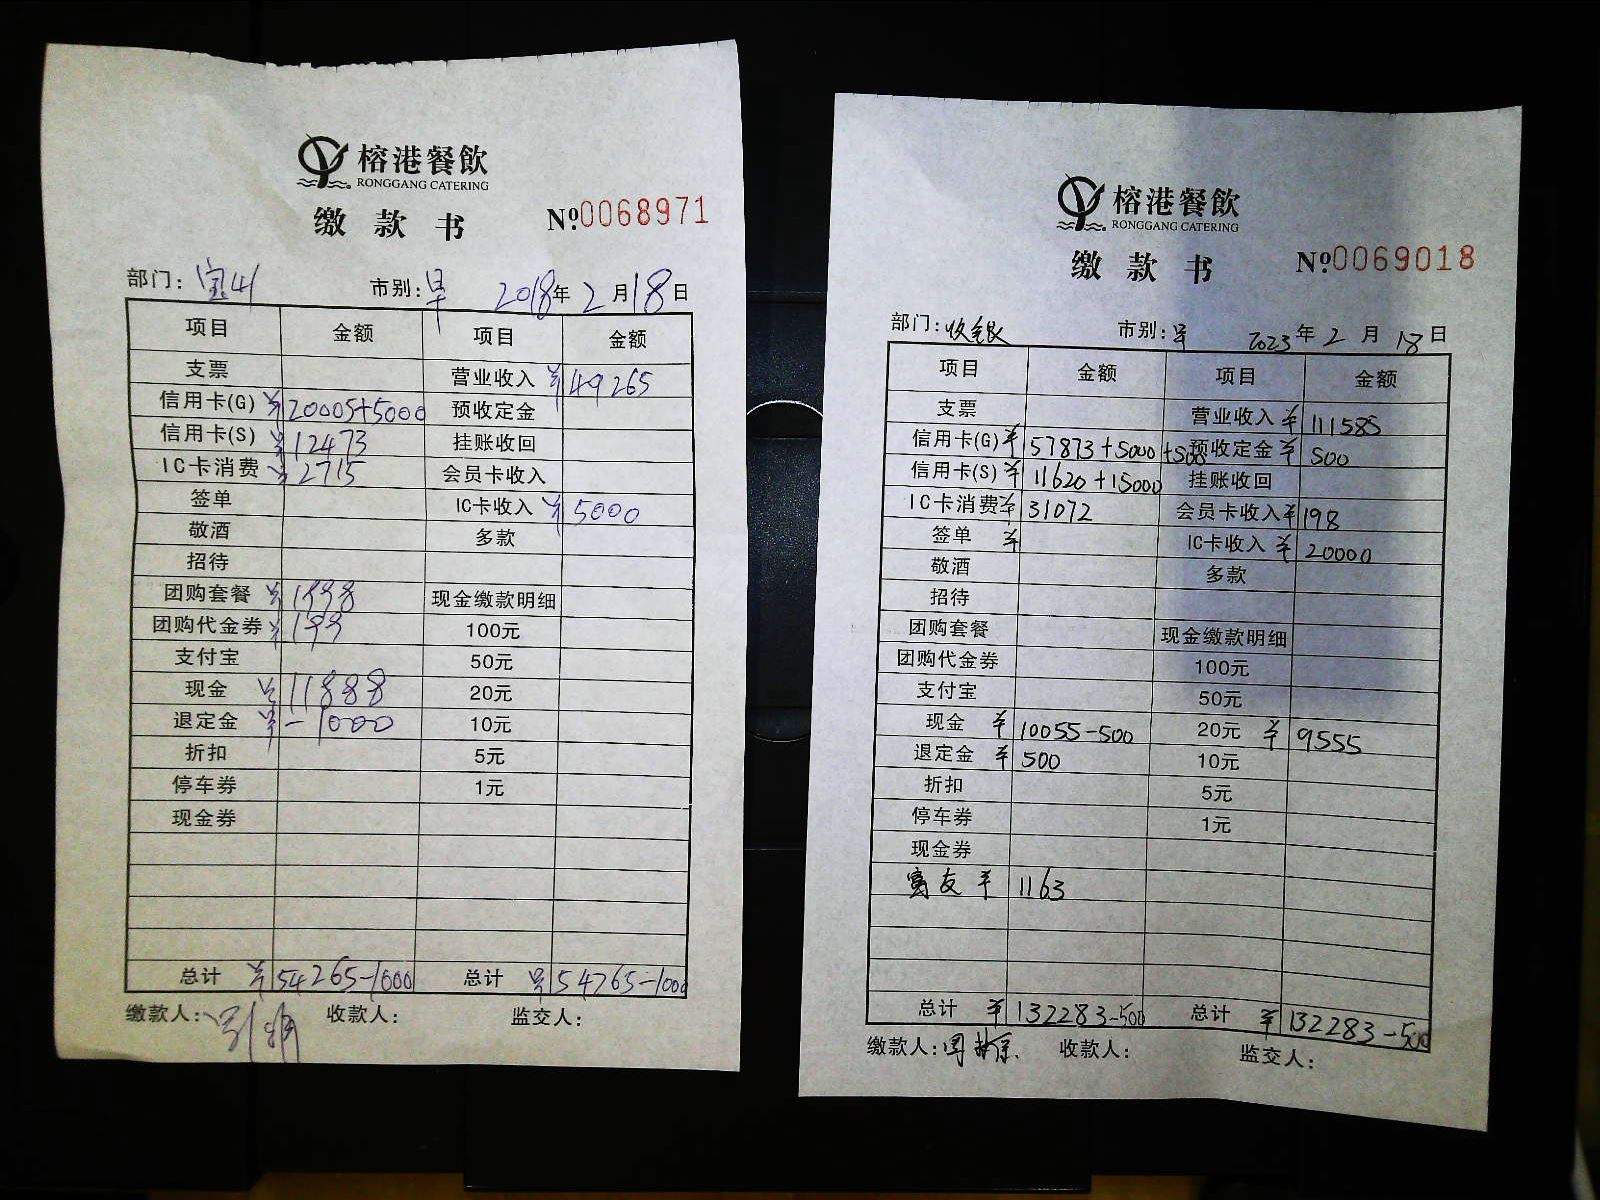 榕港餐飲
RONGGANG CATERING
缴款书
№0068971
部门: 市别:早 2018年2月18日
项目 金额 项目 金额
支票 营业收入 ¥49265
信用卡(G) ¥20005+5000 预收定金
信用卡(S) ¥12473 挂账收回
IC卡消费 ¥2715 会员卡收入
签单 IC卡收入 ¥5000
敬酒 多款
招待
团购套餐 ¥1998 现金缴款明细
团购代金券 ¥199 100元
支付宝 50元
现金 ¥11888 20元
退定金 ¥-1000 10元
折扣 5元
停车券 1元
现金券
总计 ¥54265-1000 总计 ¥54265-1000
缴款人: 收款人: 监交人:
榕港餐飲
RONGGANG CATERING
缴款书
№0069018
部门:收银 市别:早 2023年2月18日
项目 金额 项目 金额
支票 营业收入 ¥111585
信用卡(G) ¥57873+5000+500 预收定金 ¥500
信用卡(S) ¥11620+15000 挂账收回
IC卡消费 ¥31072 会员卡收入 ¥198
签单 ¥ IC卡收入 ¥20000
敬酒 多款
招待
团购套餐 现金缴款明细
团购代金券 100元
支付宝 50元
现金 ¥10055-500 20元 ¥9555
退定金 ¥500 10元
折扣 5元
停车券 1元
现金券
富友 ¥1163
总计 ¥132283-500 总计 ¥132283-500
缴款人: 收款人: 监交人: